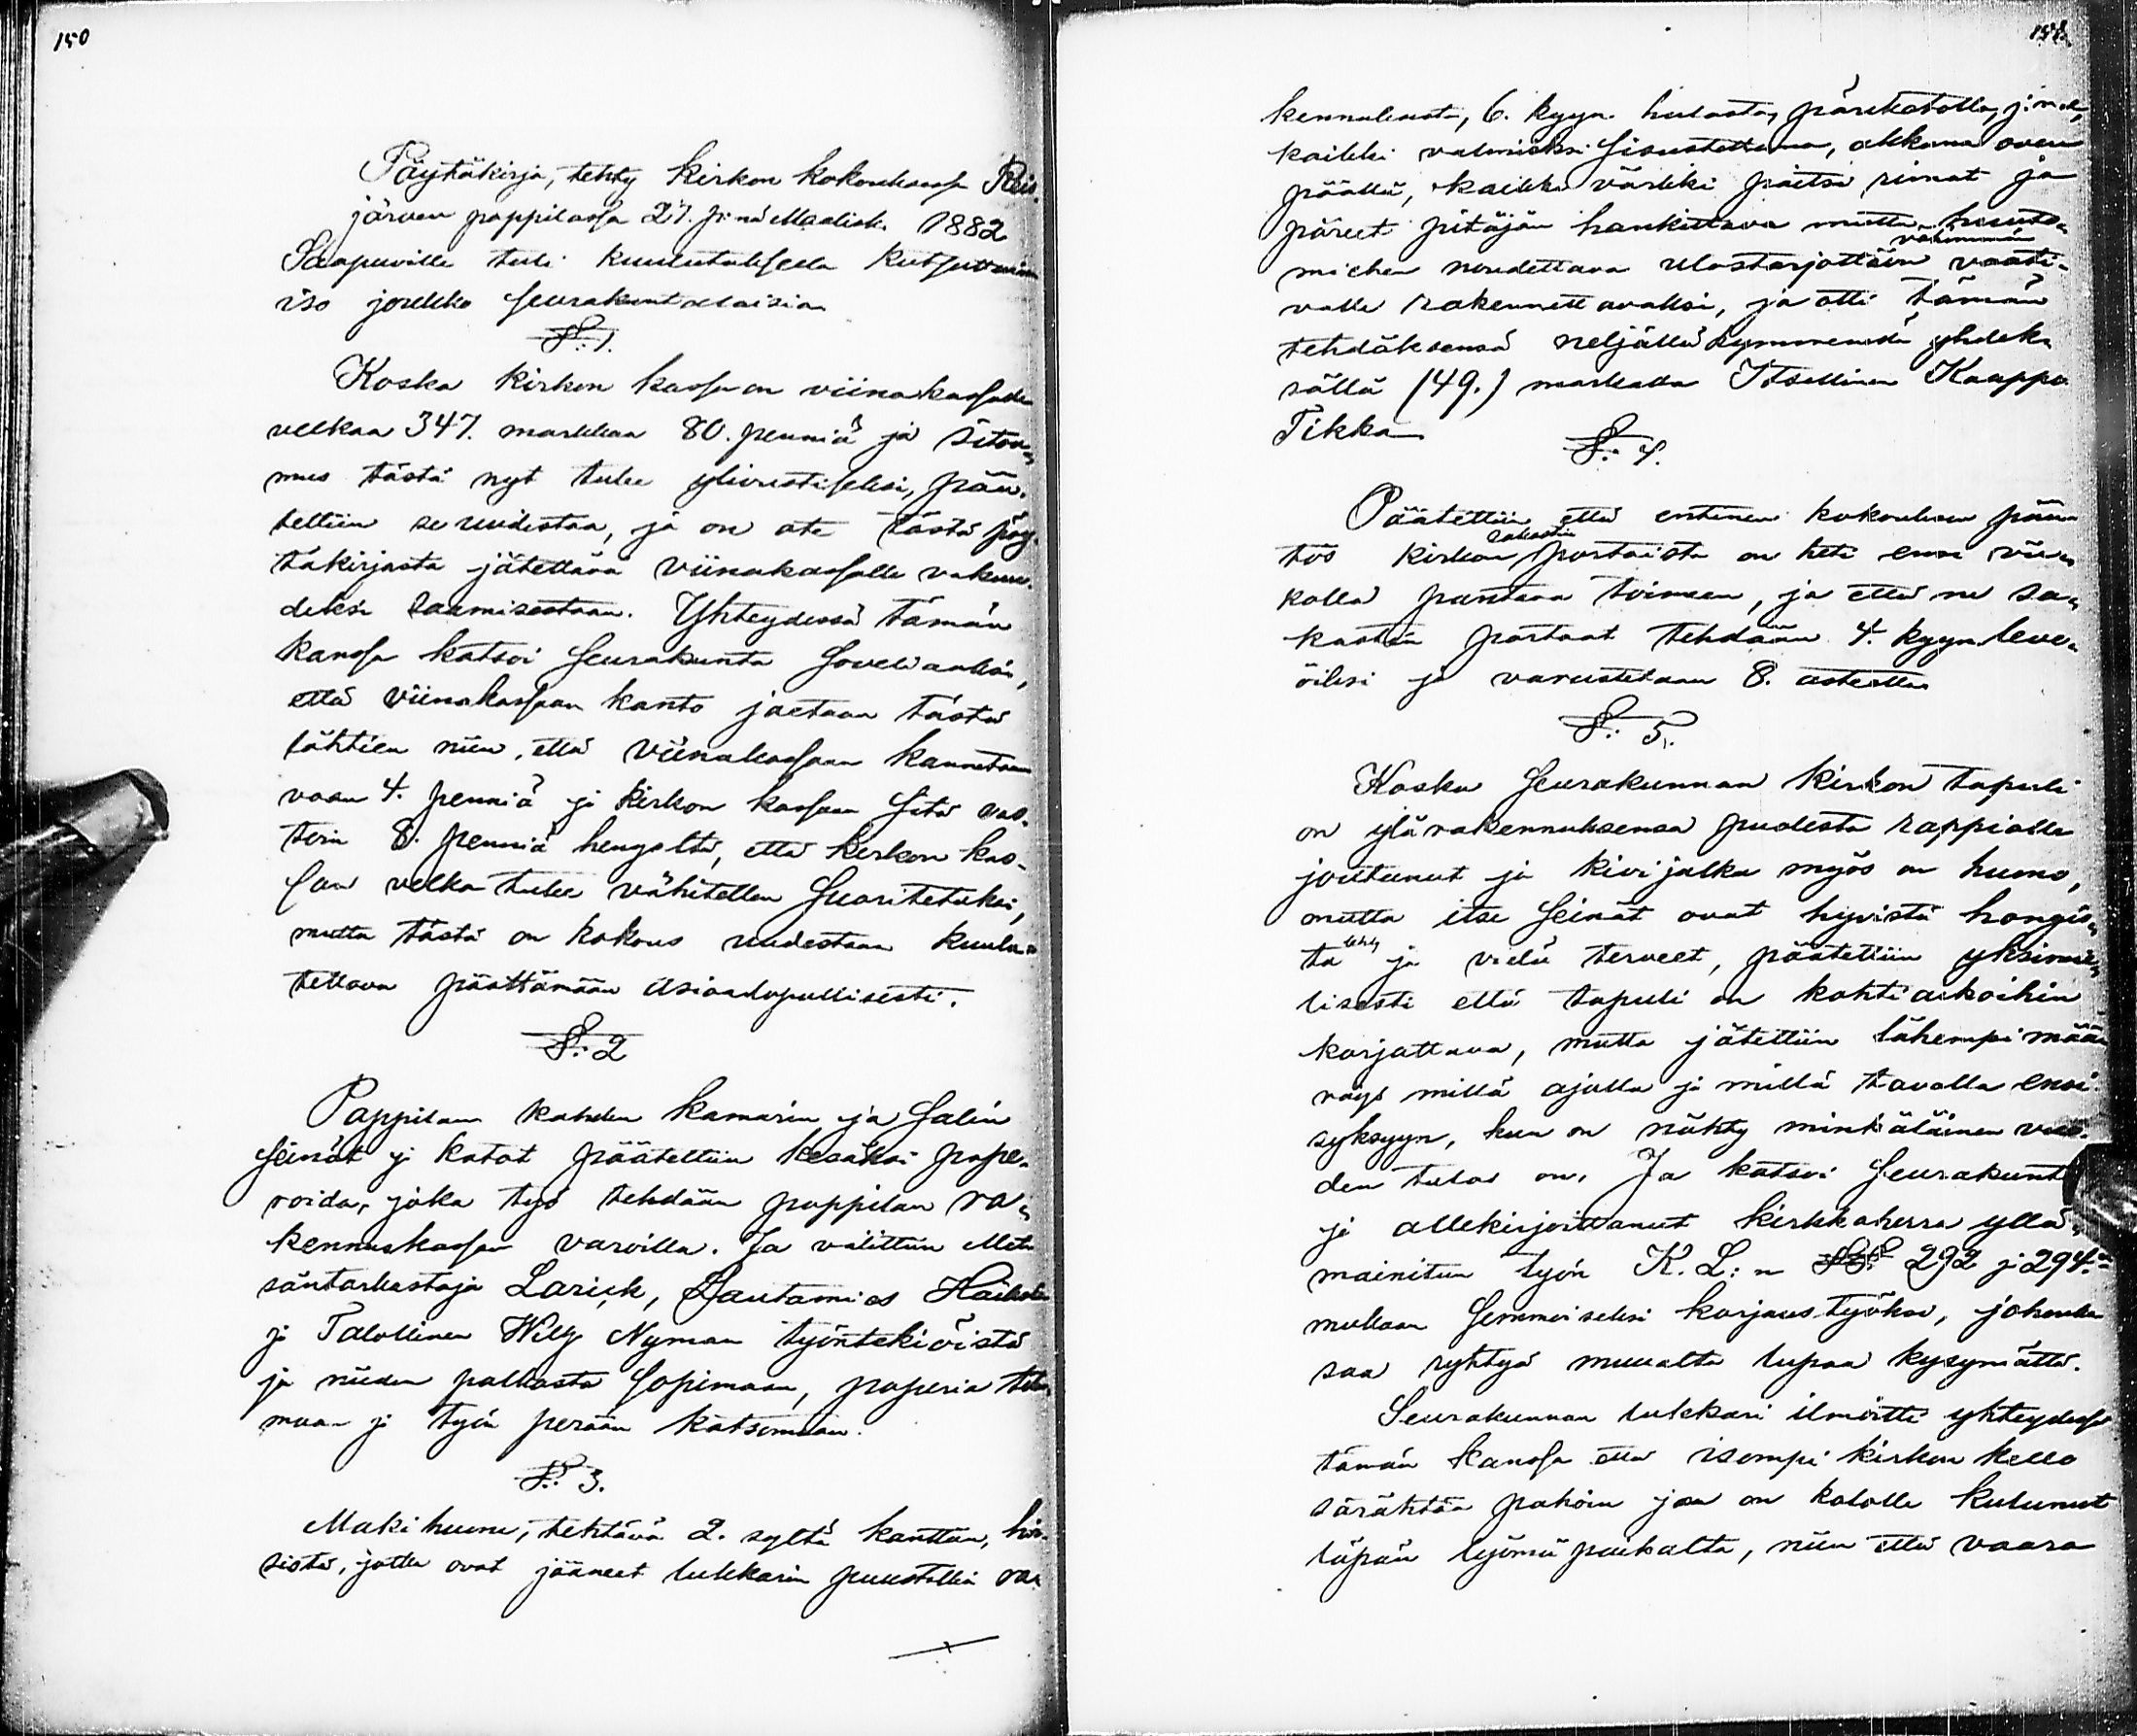 150
Pöytäkirja, tehty kirkon kokouksessa Reis-
järven pappilassa 27. p:nä Maalisk. 1882
Saapuville tuli kuulutuksella kutsuttuina
iso joukko seurakuntalaisia
§:1.
Koska kirkon kassa on viinakassalle
velkaa 347. markkaa 80. penniä ja sitou-
mus tästä nyt tulee ylivuotiseksi, pää-
tettiin se uudistaa, ja on ote tästä pöy-
täkirjasta jätettävä viinakassalle vakuu-
deksi saamisestaan. Yhteydessä tämän
kanssa katsoi seurakunta soveliaaksi,
että viinakassaan kanto jaetaan tästä
lähtien niin, että viinakassaan kannetaan
vaan 4. penniä ja kirkon kassaan sitä vas-
toin 8. penniä hengeltä, että kirkon kas-
san velka tulee vähitellen suoritetuksi,
mutta tästä on kokous uudestaan kuulu-
tettava päättämään asiaa lopullisesti.
§:2
Pappilan kahden kamarin ja salin
seinät ja katot päätettiin kesäksi pape-
roida, joka työ tehdään pappilan ra-
kennuskassan varoilla. Ja valittiin Met-
säntarkastaja Larick, Lautamies Haikola
ja Talollinen Wilh Nyman työntekiöistä
ja niiden palkasta sopimaan, paperia tila-
maan ja työn perään katsomaan.
§: 3.
Maki huone, tehtävä 2. syltä kanttiin, hir-
sistä, jotka ovat jääneet lukkarin puustellin ra-
kennuksesta, 6. kyyn. hulasta, pärekatolla, j.n.e,
kaikki valmiiksi sisustettuna, akkuna oven
päällä, kaikki värkki paitsi rimat ja
päreet pitäjän hankittava mutta huuto-
miehen noudettava ulostarjottiin vähimmän vaati-
valle rakennettavaksi, ja otti tämän
tehdäksensä neljälläkymmenellä yhdek-
sällä (49.) markalla Itsellinen Kauppo
Tikka
§: 4.
Päätettiin että entinen kokouksen pää-
tös kirkon sakastin portaista on heti ensi vii-
kolla pantava toimeen, ja että ne sa-
kastin portaat tehdään 4. kyyn leve-
öiksi ja varustetaan 8. asteella
§: 5.
Koska seurakunnan kirkon tapuli
on ylärakennuksensa puolesta rappiolle
joutunut ja kivijalka myös on huono,
mutta itse seinät ovat hyvistä hongis-
ta tehty ja vielä terveet, päätettiin yksimie-
lisesti että tapuli on kohtiakoihin
korjattava, mutta jätettiin lähempi mää-
räys millä ajalla ja millä tavalla ensi
syksyyn, kun on nähty minkäläinen vuo-
den tulos on. Ja katsoi seurakunta
ja allekirjoittanut kirkkoherra yllä-
mainitun työn K. L:n §§ 292 ja 294:n
mukaan semmoiseksi korjaustyöksi, johonka
saa ryhtyä muualta lupaa kysymättä.
Seurakunnan lukkari ilmoitti yhteydessä
tämän kanssa että isompi kirkon kello
särähtää pahoin jaa on kololle kulunut
läpän lyömä paikalta, niin että vaara